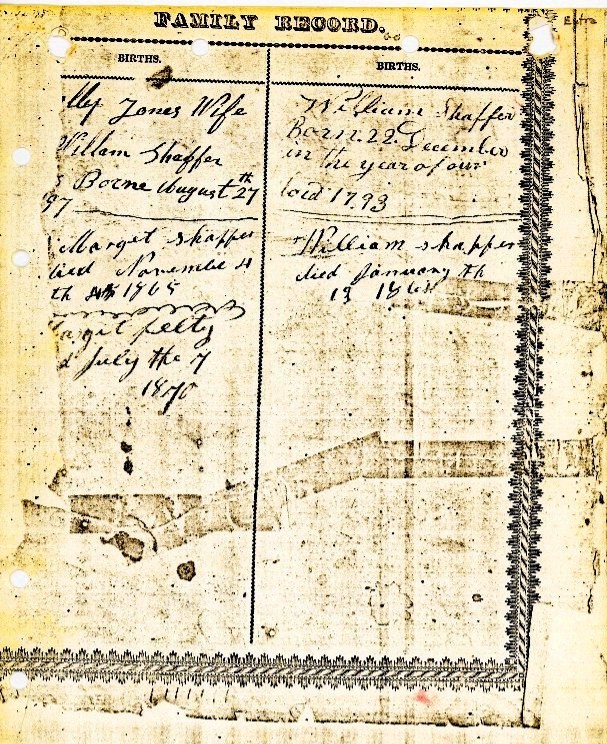 Extra
FAMILY RECORD.
BIRTHS.
lly Jones Wife
Willam Shaffer
Borne August th 27
97
Marget Shaffer
died November 4
th 1865
argit felty
d July the 7
1870
BIRTHS.
William Shaffer
Born 22 December
in the year of our
lord 1793
William Shaffer
died January th
13